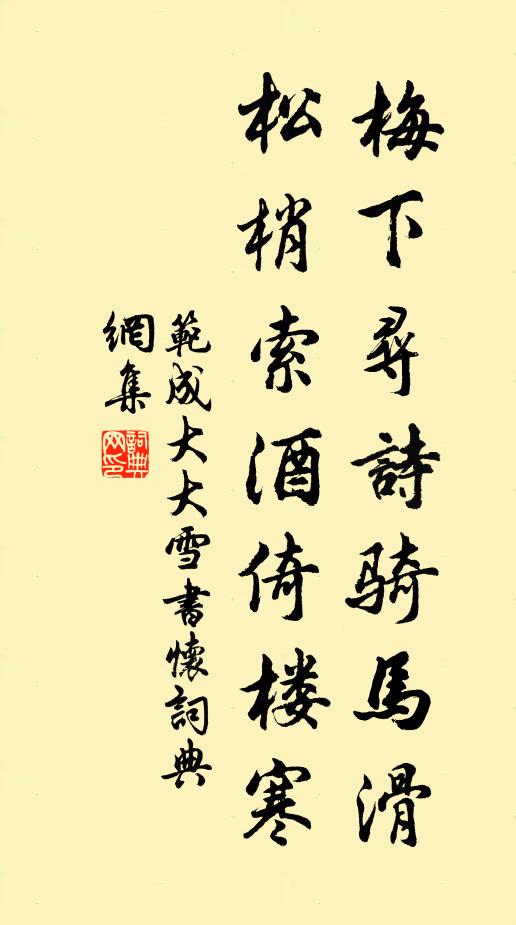 梅下尋詩騎馬滑
松梢索酒倚楼寒
範成大大雪書懷詞典
網集
詞典
网印